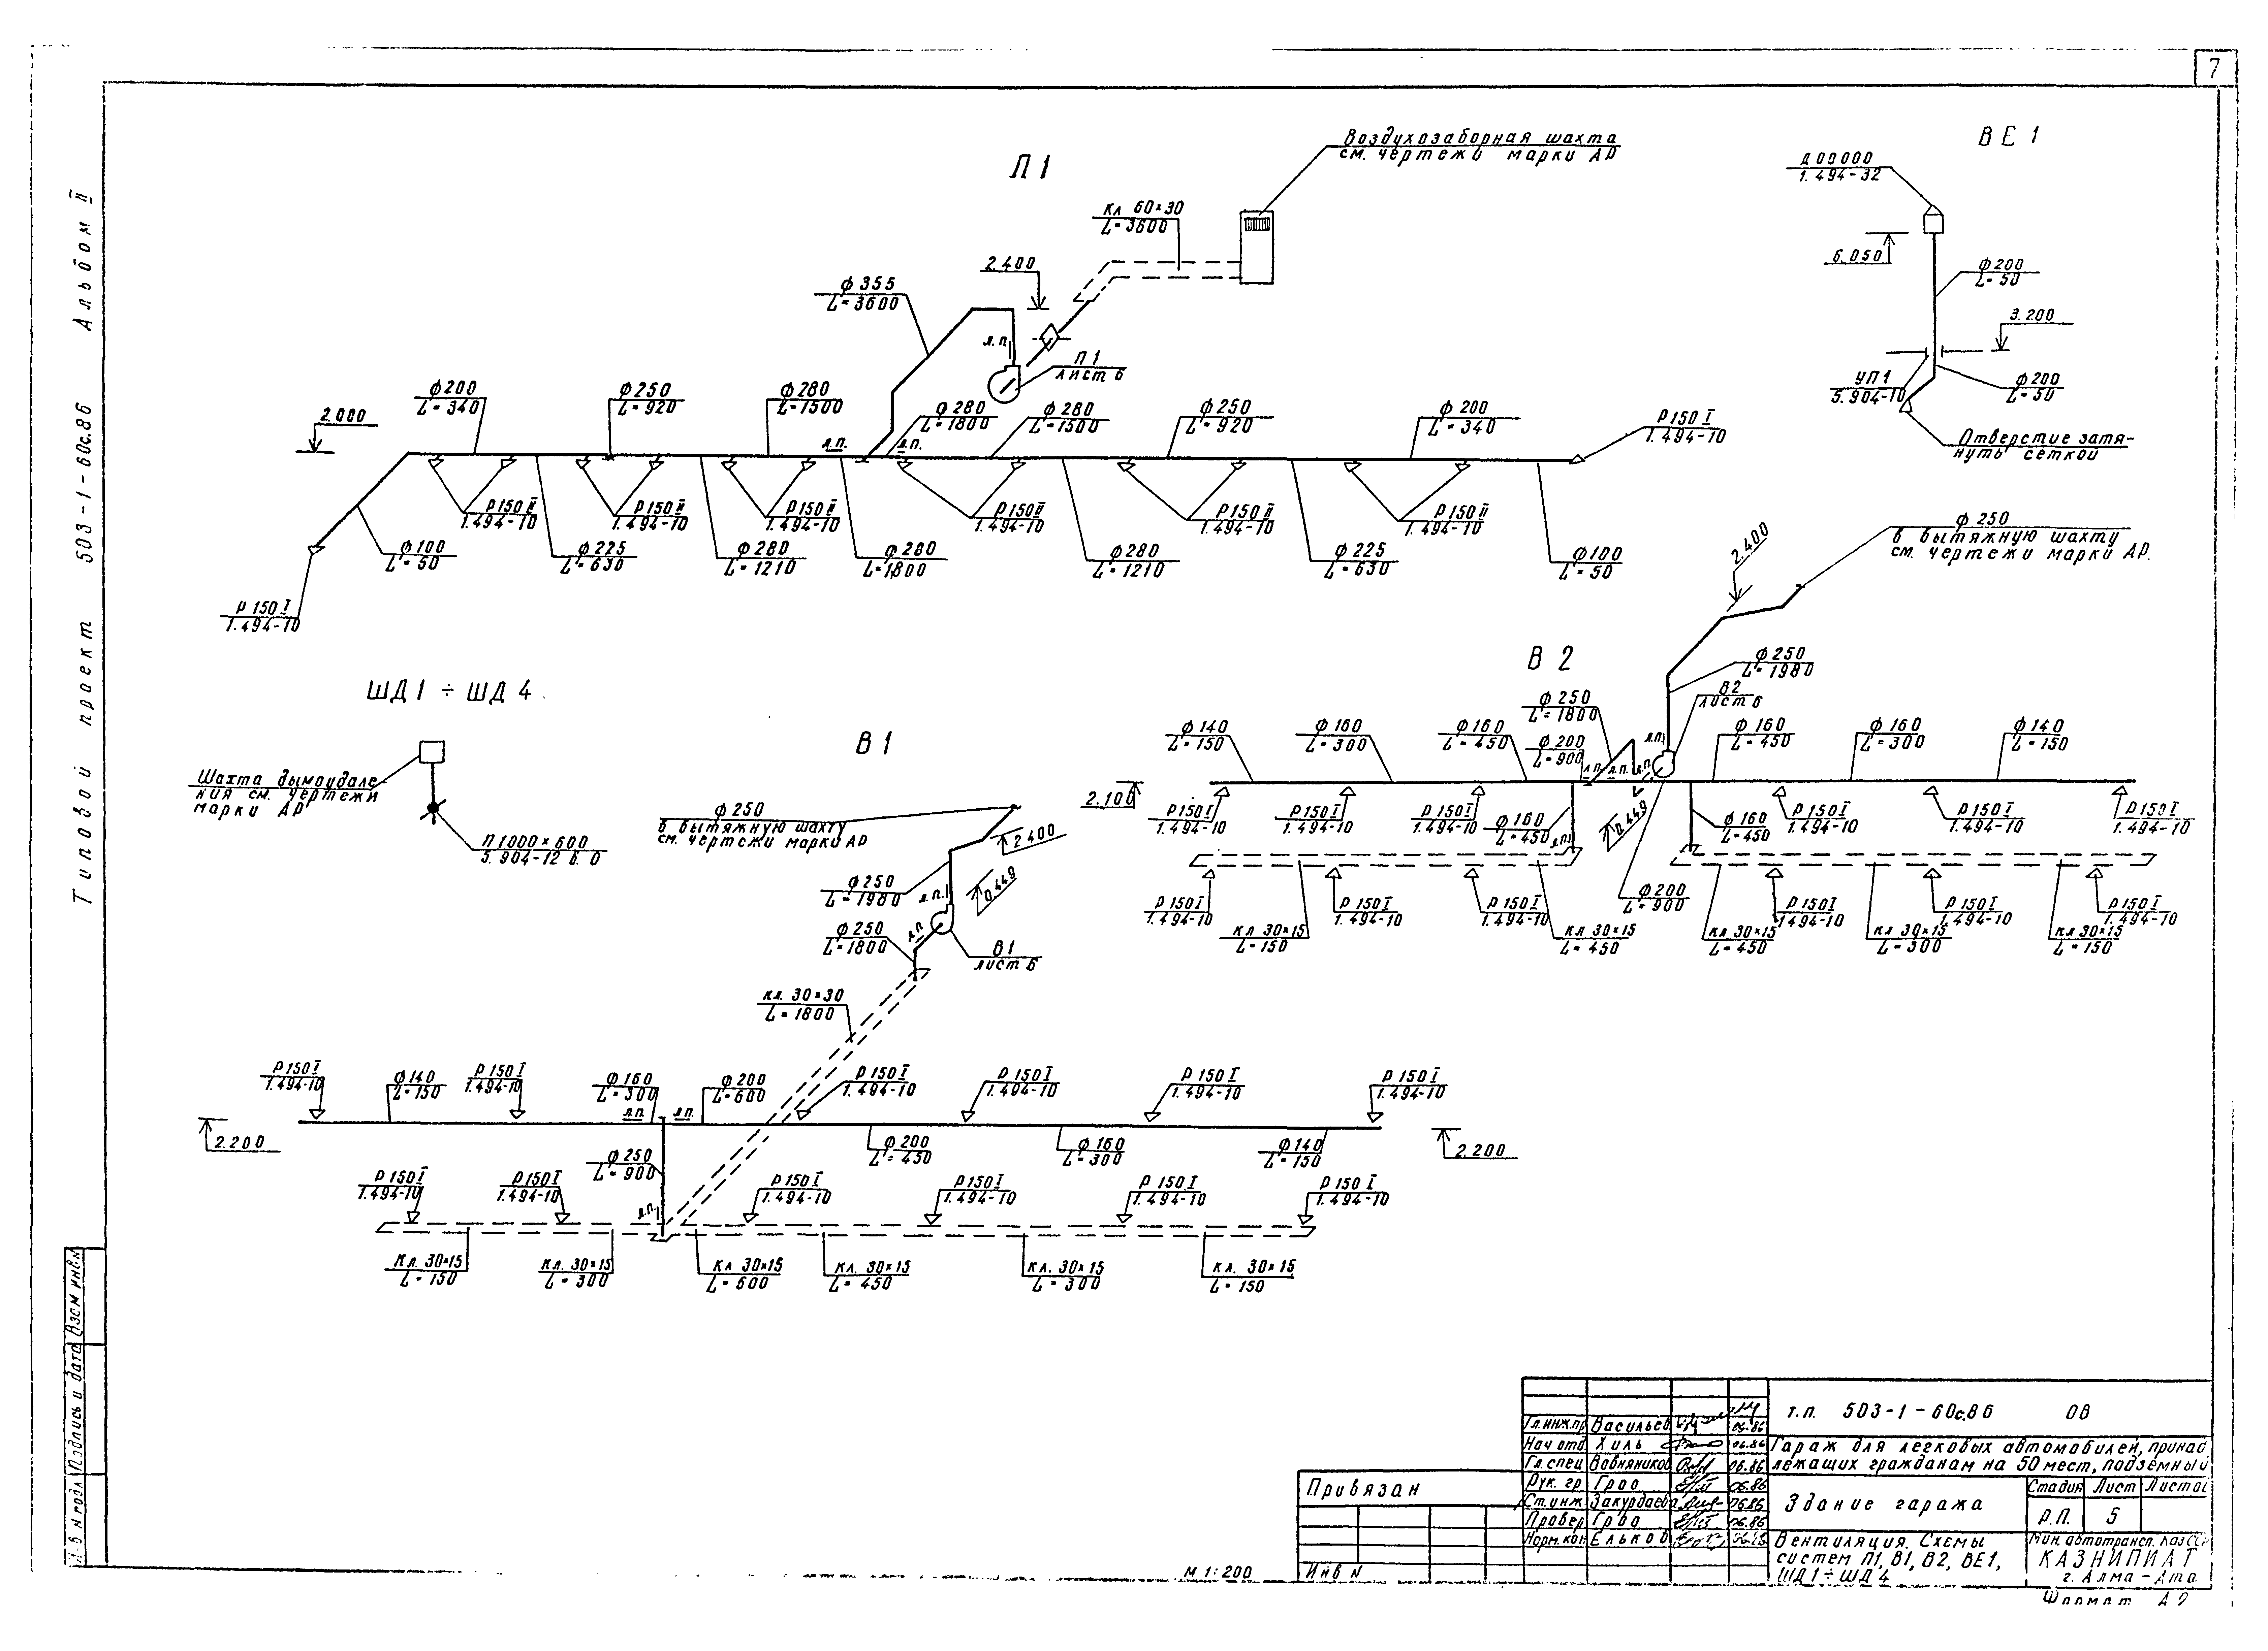 7
Типовой проект 503-1-60с.86 Альбом II
П1
Воздухозаборная шахта
см. чертежи марки АР
Кл 60×30
L=3600
2.400
ф 355
L=3600
л.п.
П1
лист 6
ВЕ1
Д 00000
1.494-32
6.050
ф200
L=50
3.200
УП1
5.904-10
ф200
L=50
Отверстие затя-
нуть сеткой
2.000
ф200
L=340
ф250
L=920
ф280
L=1500
л.п.
л.п.
ф280
L=1800
ф280
L=1500
ф250
L=920
ф200
L=340
Р150 I
1.494-10
Р150 II
1.494-10
Р150 II
1.494-10
Р150 II
1.494-10
Р150 II
1.494-10
Р150 II
1.494-10
Р150 II
1.494-10
ф100
L=50
ф225
L=630
ф280
L=1210
ф280
L=1800
ф280
L=1210
ф225
L=630
ф100
L=50
Р150 I
1.494-10
ШД1 ÷ ШД4
Шахта дымоудале-
ния см. чертежи
марки АР
П1000×600
5.904-12 6.0
В2
ф250
в вытяжную шахту
см. чертежи марки АР.
2.400
ф250
L=1980
В2
лист 6
ф140
L=150
ф160
L=300
ф160
L=450
ф250
L=1800
ф200
L=900
л.п.
л.п.
л.п.
л.п.
ф160
L=450
ф160
L=300
ф140
L=150
2.100
Р150 I
1.494-10
Р150 I
1.494-10
Р150 I
1.494-10
ф160
L=450
л.п.
0.449
ф160
L=450
Р150 I
1.494-10
Р150 I
1.494-10
Р150 I
1.494-10
Р150 I
1.494-10
Р150 I
1.494-10
Р150 I
1.494-10
ф200
L=900
Р150 I
1.494-10
Р150 I
1.494-10
Р150 I
1.494-10
кл 30×15
L=150
кл 30×15
L=450
кл 30×15
L=450
кл 30×15
L=300
кл 30×15
L=150
В1
ф250
в вытяжную шахту
см. чертежи марки АР
2.400
0.449
ф250
L=1980
л.п.
ф250
L=1800
л.п.
В1
лист 6
кл. 30×30
L=1800
Р150 I
1.494-10
ф140
L=150
Р150 I
1.494-10
ф160
L=300
л.п.
ф200
L=600
л.п.
Р150 I
1.494-10
Р150 I
1.494-10
Р150 I
1.494-10
Р150 I
1.494-10
2.200
ф250
L=900
ф200
L=450
ф160
L=300
ф140
L=150
2.200
Р150 I
1.494-10
Р150 I
1.494-10
л.п.
Р150 I
1.494-10
Р150 I
1.494-10
Р150 I
1.494-10
Р150 I
1.494-10
Кл. 30×15
L=150
Кл. 30×15
L=300
Кл 30×15
L=600
кл. 30×15
L=450
кл. 30×15
L=300
кл. 30×15
L=150
М 1:200
Взам инв.N
Подпись и дата
N подл
Привязан
Инв N
Гл.инж.пр Васильев 06.86
Нач отд Хиль 06.86
Гл.спец Вовняников 06.86
Рук. гр Гроо 06.86
Ст.инж. Закурдаева 06.86
Провер Гроо 06.86
Норм.кон. Ельков
т.п. 503-1-60с.86 ОВ
Гараж для легковых автомобилей, принад
лежащих гражданам на 50 мест, подземный
Здание гаража
Стадия Лист Листов
Р.П. 5
Вентиляция. Схемы
систем П1, В1, В2, ВЕ1,
ШД1÷ШД4
Мин. автотрансп. КазССР
КАЗНИПИАТ
г. Алма-Ата
Формат А2